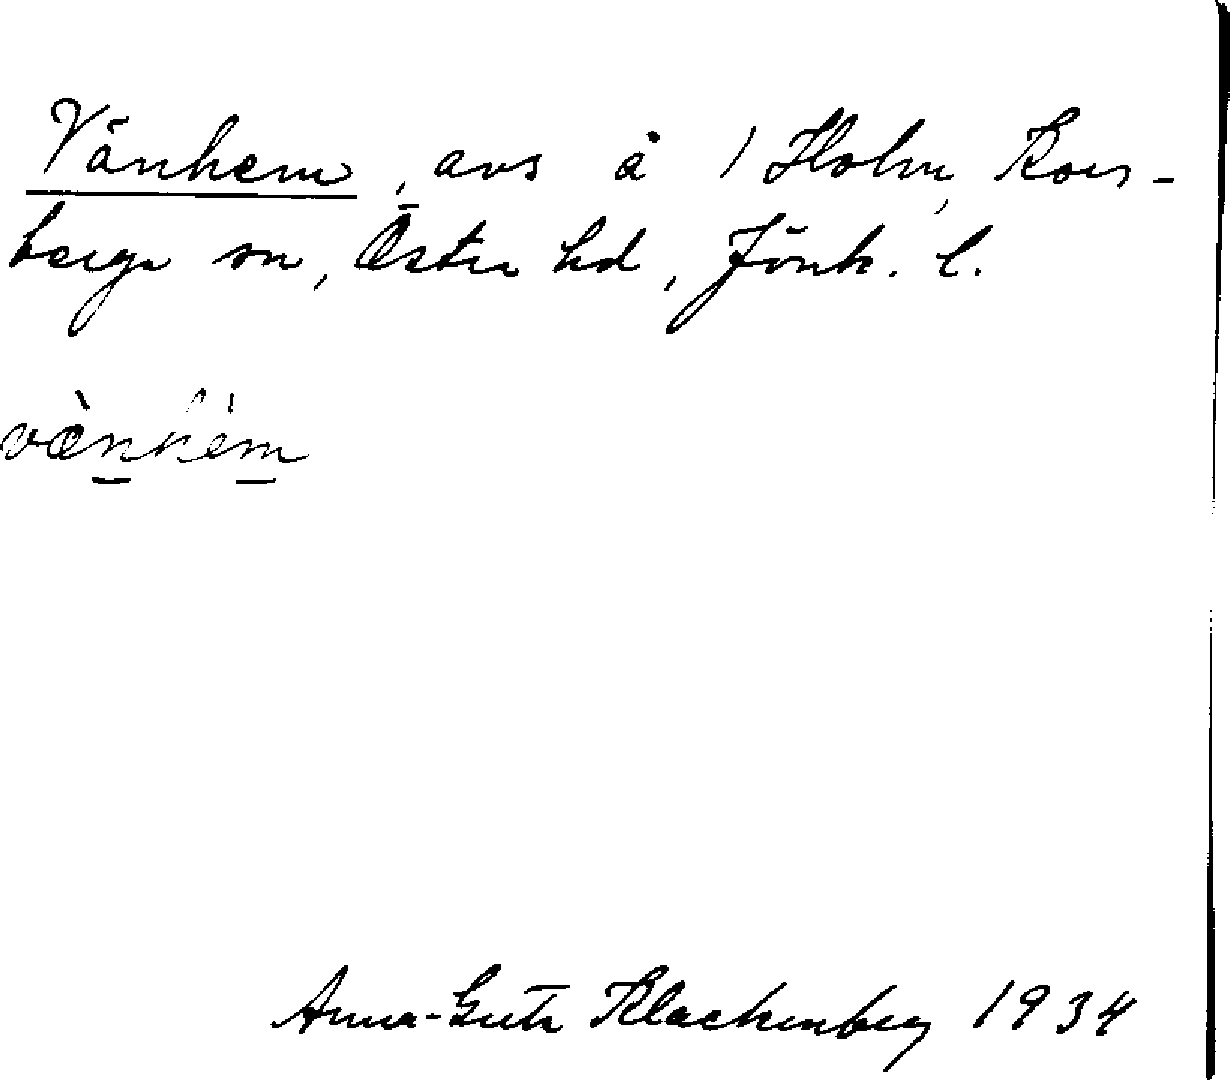 Vänhem, avs å 1 Holm, Kors-
berga sn, Östra hd, Jönk. l.
vænhem
Anna-Greta Klackenberg 1934